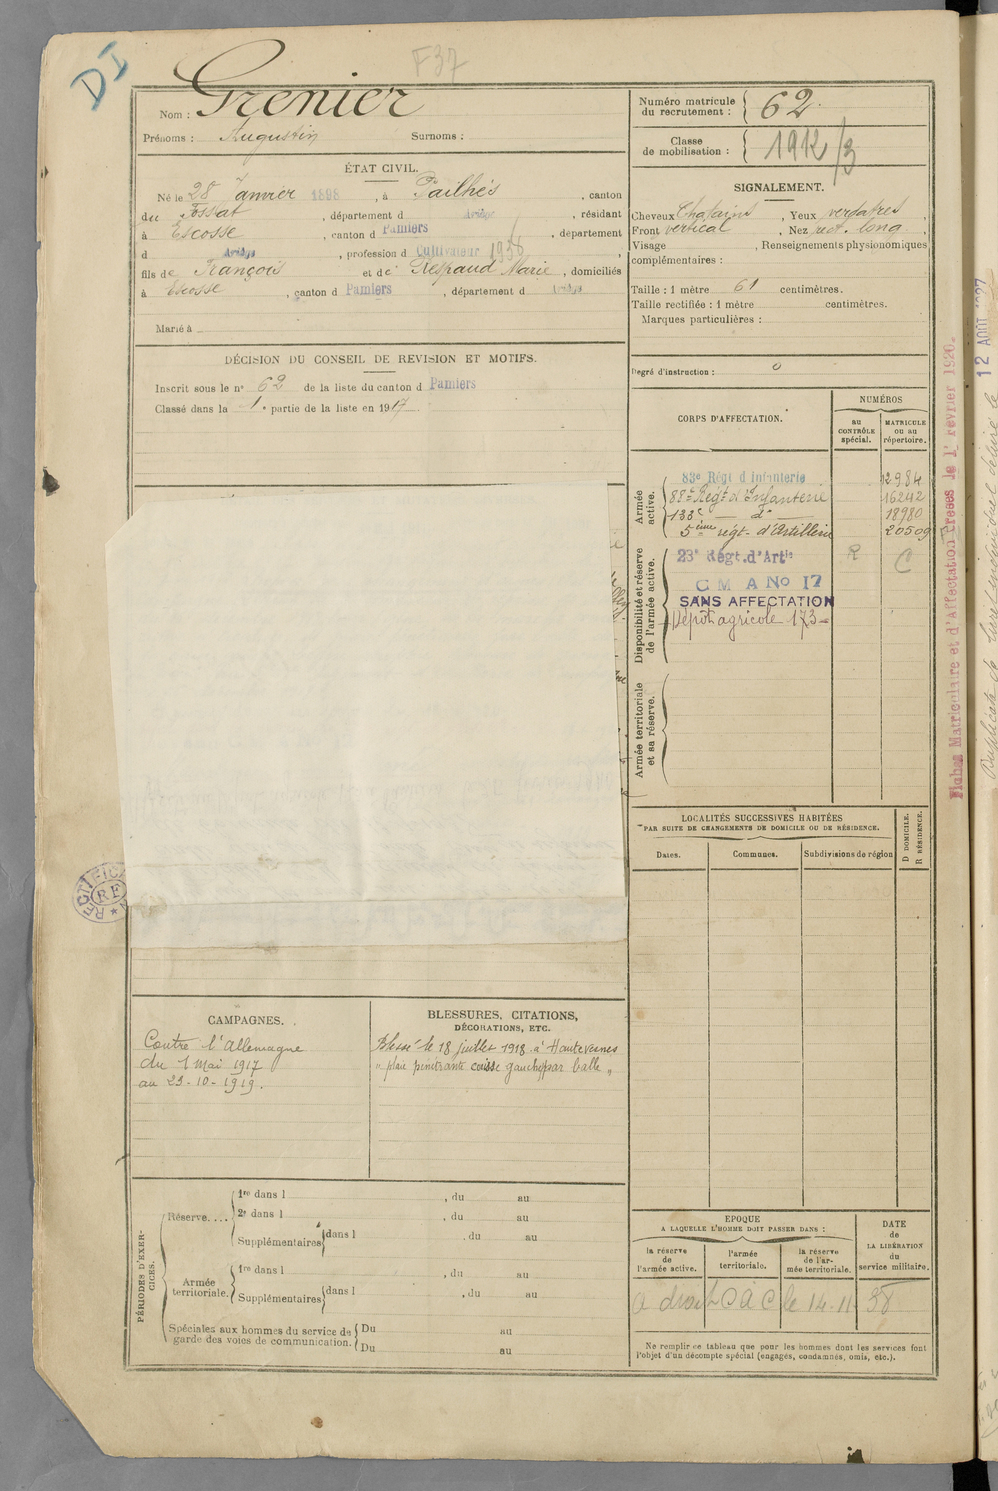 DI
F37
Nom : Grenier
Prénoms : Augustin Surnoms :
ÉTAT CIVIL.
Né le 28 Janvier 1898, à Pailhés, canton
du Fossat, département d Ariège, résidant
à Escosse, canton d Pamiers, département
d Ariège, profession d Cultivateur 1938
fils de François et de Respaud Marie, domiciliés
à Escosse, canton d Pamiers, département d Ariège
Marié à
DÉCISION DU CONSEIL DE REVISION ET MOTIFS.
Inscrit sous le n° 62 de la liste du canton d Pamiers
Classé dans la 1e partie de la liste en 1917
RECTIFICATION
RF
CAMPAGNES.
Contre l'Allemagne
du 1 Mai 1917
au 23-10-1919.
BLESSURES, CITATIONS,
DÉCORATIONS, ETC.
Blessé le 18 juillet 1918 à Hautevesnes
"plaie pénétrante cuisse gauche par balle"
PÉRIODES D'EXERCICES.
Réserve....
1re dans l , du au
2e dans l , du au
Supplémentaires dans l , du au
Armée territoriale.
1re dans l , du au
Supplémentaires dans l , du au
Spéciales aux hommes du service de garde des voies de communication.
Du au
Du au
Numéro matricule du recrutement : 62
Classe de mobilisation : 1912/3
SIGNALEMENT.
Cheveux Chatains, Yeux verdatres,
Front vertical, Nez rect. long,
Visage , Renseignements physionomiques
complémentaires :
Taille : 1 mètre 61 centimètres.
Taille rectifiée : 1 mètre centimètres.
Marques particulières :
Degré d'instruction : 0
CORPS D'AFFECTATION.
NUMÉROS
au CONTRÔLE spécial.
MATRICULE ou au répertoire.
Armée active.
83e Régt d'Infanterie 12984
88e Régt d'Infanterie 16242
133e — do — 18980
5ème régt. d'Artillerie 20509
Disponibilité et réserve de l'armée active.
23e Régt. d'Artie R C
C M A No 17
SANS AFFECTATION
Dépôt agricole 173
Armée territoriale et sa réserve.
LOCALITÉS SUCCESSIVES HABITÉES
PAR SUITE DE CHANGEMENTS DE DOMICILE OU DE RÉSIDENCE.
Dates.
Communes.
Subdivisions de région
D DOMICILE.
R RÉSIDENCE.
ÉPOQUE
A LAQUELLE L'HOMME DOIT PASSER DANS :
la réserve de l'armée active.
l'armée territoriale.
la réserve de l'armée territoriale.
DATE de LA LIBÉRATION du service militaire.
a droit à C à C le 14-11-38
Ne remplir ce tableau que pour les hommes dont les services font
l'objet d'un décompte spécial (engagés, condamnés, omis, etc.).
Fiches Matriculaire et d'Affectation creses le 1r fevrier 1920.
12 AOUT